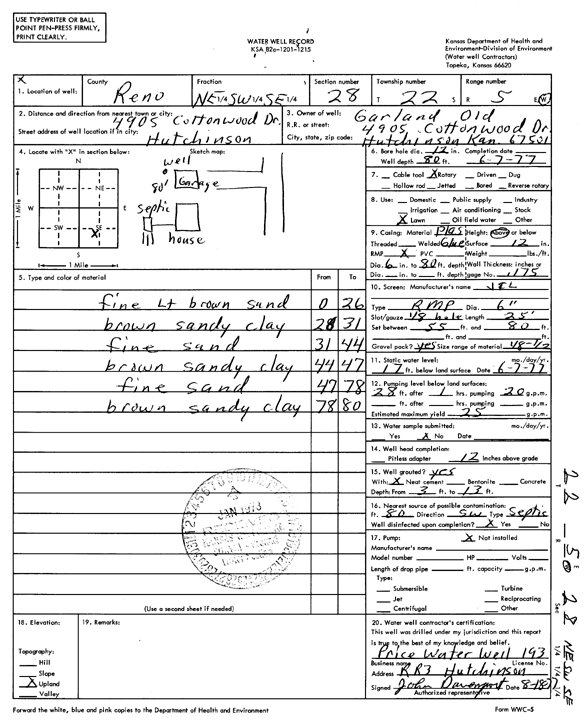 USE TYPEWRITER OR BALL
POINT PEN-PRESS FIRMLY,
PRINT CLEARLY.
WATER WELL RECORD
KSA 82a-1201-1215
Kansas Department of Health and
Environment-Division of Environment
(Water well Contractors)
Topeka, Kansas 66620
1. Location of well: County Reno Fraction NE 1/4 SW 1/4 SE 1/4 Section number 28 Township number T 22 S Range number R 5 E/W
2. Distance and direction from nearest town or city:
4905 Cottonwood Dr.
Street address of well location if in city: Hutchinson
3. Owner of well: Garland Old
R.R. or street: 4905 Cottonwood Dr.
City, state, zip code: Hutchinson Kan. 67501
4. Locate with "X" in section below: Sketch map:
N
NW NE
W E
SW SE
X
S
1 Mile
1 Mile
well
80' Garage
septic
house
5. Type and color of material From To
fine Lt brown sand 0 26
brown sandy clay 28 31
fine sand 31 44
brown sandy clay 44 47
fine sand 47 78
brown sandy clay 78 80
JAN 1978
(Use a second sheet if needed)
6. Bore hole dia. 12 in. Completion date
Well depth 80 ft. 6-7-77
7. Cable tool X Rotary Driven Dug
Hollow rod Jetted Bored Reverse rotary
8. Use: Domestic Public supply Industry
Irrigation Air conditioning Stock
X Lawn Oil field water Other
9. Casing: Material Plas Height: Above or below
Threaded Welded Glue Surface 12 in.
RMP X PVC Weight lbs./ft.
Dia. 6 in. to 80 ft. depth Wall Thickness: inches or
Dia. in. to ft. depth gage No. .175
10. Screen: Manufacturer's name
Type RMP Dia. 6"
Slot/gauze 1/8 hole Length 25'
Set between 55 ft. and 80 ft.
ft. and ft.
Gravel pack? yes Size range of material 1/8-1/2
11. Static water level: mo./day/yr.
17 ft. below land surface Date 6-7-77
12. Pumping level below land surfaces:
28 ft. after 1 hrs. pumping 20 g.p.m.
ft. after hrs. pumping g.p.m.
Estimated maximum yield 25 g.p.m.
13. Water sample submitted: mo./day/yr.
Yes X No Date
14. Well head completion:
Pitless adapter 12 Inches above grade
15. Well grouted? yes
With: X Neat cement Bentonite Concrete
Depth: From 3 ft. to 13 ft.
16. Nearest source of possible contamination:
ft. 80 Direction SW Type Septic
Well disinfected upon completion? X Yes No
17. Pump: X Not installed
Manufacturer's name
Model number HP Volts
Length of drop pipe ft. capacity g.p.m.
Type:
Submersible Turbine
Jet Reciprocating
Centrifugal Other
18. Elevation:
Topography:
Hill
Slope
X Upland
Valley
19. Remarks:
20. Water well contractor's certification:
This well was drilled under my jurisdiction and this report
is true to the best of my knowledge and belief.
Price Water Well 193
Business name License No.
Address RR3 Hutchinson
Signed John Davenport Date 8-18-77
Authorized representative
Forward the white, blue and pink copies to the Department of Health and Environment
Form WWC-5
22 - 5 28 NE SW SE
Sec 1/4 1/4 1/4